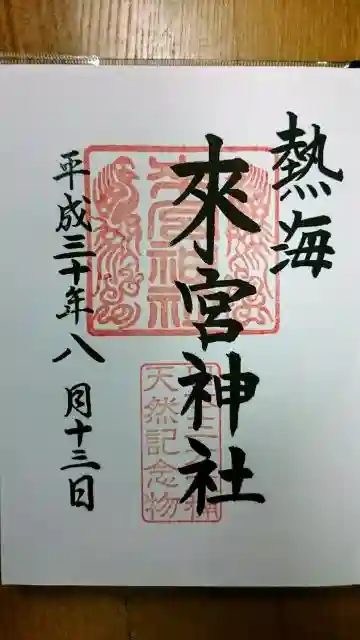 熱海
來宮神社
平成三十年八月十三日
來宮神社
天然記念物